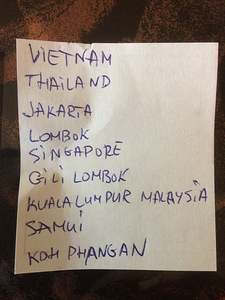 VIETNAM
THAiLAND
JAKARTA
LOMBOK
SiNGAPORE
GiLi LOMBOK
KUALA LUMPUR MALAYSiA
SAMUi
KOH PHANGAN